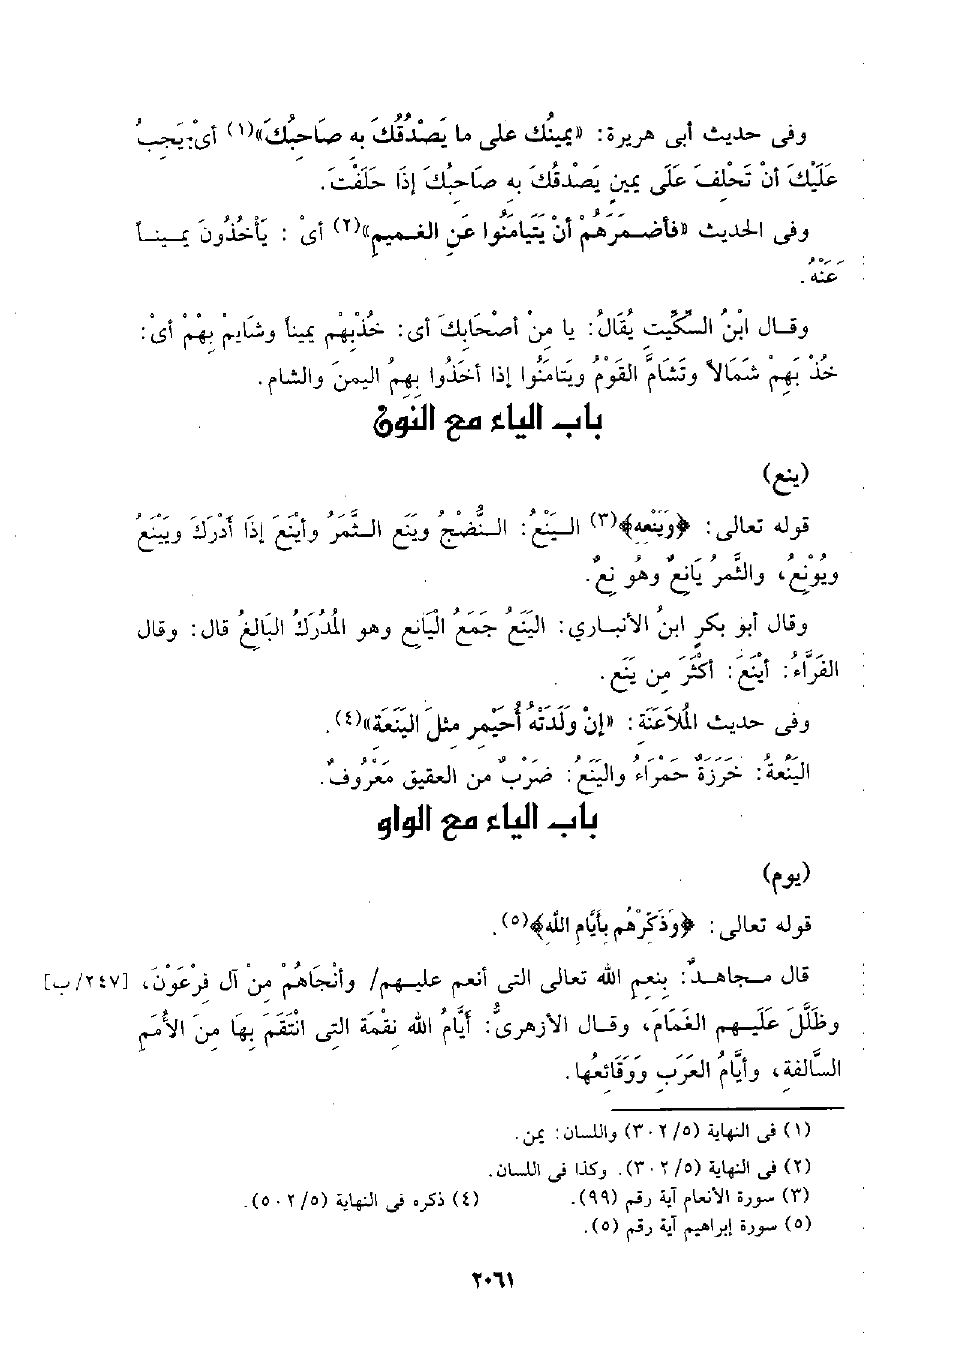 وفى حديث أبى هريرة: «يمينُك على ما يَصْدُقُكَ به صَاحِبُكَ»(١) أىْ: يَجِبُ
عَلَيْكَ أنْ تَحْلِفَ عَلَى يمينٍ يَصْدقُكَ به صَاحِبُكَ إذَا حَلَفْتَ.
وفى الحديث «فأضمَرَهُمْ أنْ يَتَيَامَنُوا عَنِ الغَميم»(٢) أىْ : يَأْخُذُونَ يميناً
عَنْهُ.
وقال ابْنُ السكِّيتِ يُقَالُ: يا مِنْ أصْحَابِكَ أى: خُذْبِهْم يميناً وشَايِمْ بِهْمْ أىْ:
خُذْ بَهِمْ شَمَالاً وتَشَامَّ القَوْمُ ويَتَامَنُوا إذا أخَذُوا بِهِمُ اليمنَ والشام.
باب الياء مع النون
(ينع)
قوله تعالى: ﴿وَيَنْعِه﴾(٣) اليَنْعُ: النُّضْجُ ويَنَع الثَّمَرُ وأيْنَعَ إذَا أدْرَكَ ويَيْنَعُ
ويُونْعُ، والثَّمرُ يَانِعٌ وهُو نِعٌ.
وقال أبو بكرٍ ابنُ الأنبارِي: اليَنَعُ جَمَعُ الْيَانِع وهو المُدْرَكُ البَالِغُ قال: وقال
الفَرَّاءُ: أيْنَعَ: أكْثَرَ مِن يَنَع.
وفى حديث المُلاَعَنَة: «إنْ وَلَدَتْهُ أُحَيْمِر مثلَ اليَنَعَة»(٤).
اليَنْعةُ: خَرَزَةٌ حَمْرَاءُ واليَنَعُ: ضَرْبٌ من العقيق مَعْرُوفٌ.
باب الياء مع الواو
(يوم)
قوله تعالى: ﴿وَذَكِّرْهُم بِأَيَّامِ اللَّه﴾(٥).
قال مجاهدٌ: بِنِعِم الله تعالى التى أنعم عليهم/ وأنْجَاهُمْ مِنْ آل فِرْعَوْنَ، [٢٤٧/ب]
وظَلَّلَ عَلَيهم الغَمَامَ، وقال الأزهرىُّ: أيَّامُ الله نِقْمَة التى انْتَقَمَ بِهَا مِنَ الأُمَمِ
السَّالفةِ، وأيَّامُ العَرَبِ وَوَقَائعُها.
(١) فى النهاية (٣٠٢/٥) واللسان: يمن.
(٢) فى النهاية (٣٠٢/٥). وكذا فى اللسان.
(٣) سورة الأنعام آية رقم (٩٩). (٤) ذكره فى النهاية (٥٠٢/٥).
(٥) سورة إبراهيم آية رقم (٥).
٢٠٦١